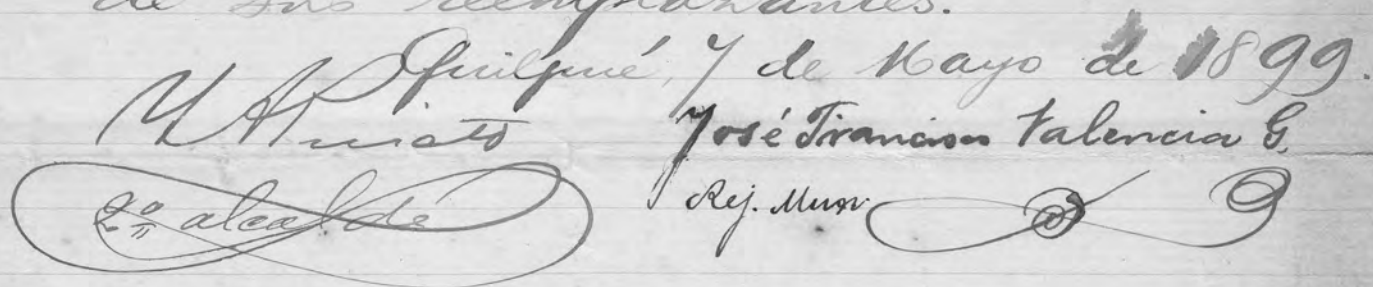 de sus reemplazantes.
Quilpué, 7 de Mayo de 1899.
José Francisco Valencia G.
2º alcalde
Rej. Mun.